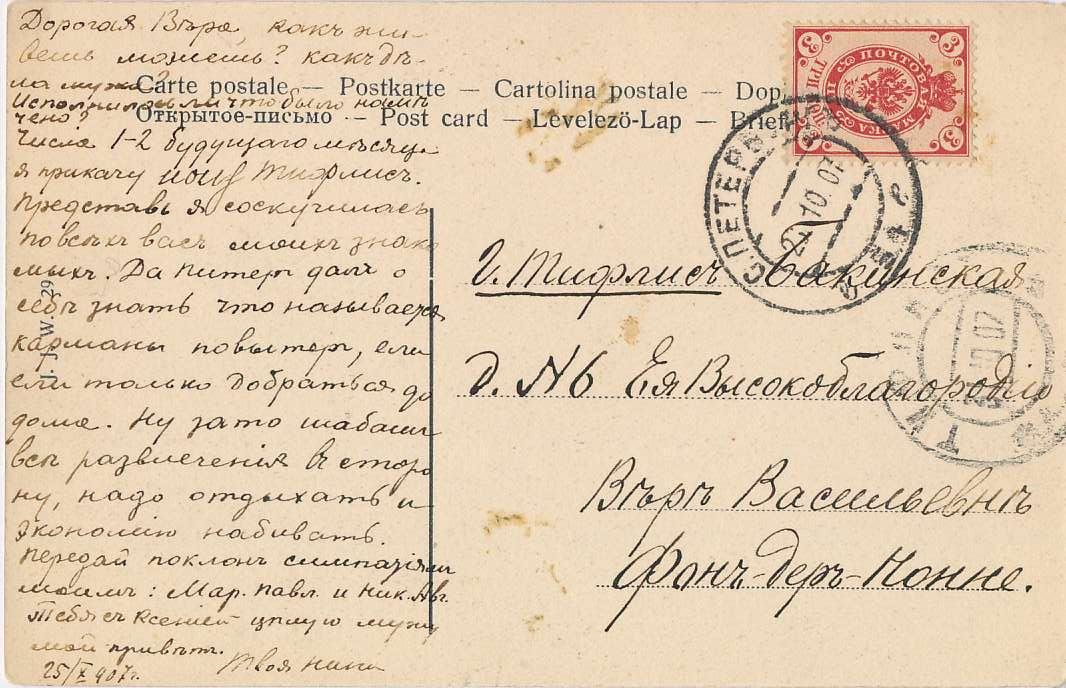 Дорогая Вѣра, какъ жи-
вешь можешь? какъ дѣ-
ла мужа?
Исполнилось ли что было
чено?
Числа 1-2 будущаго мѣсяца
я прикачу Тифлисъ.
Представь я соскучилась
по всѣхъ васъ моихъ знако
мыхъ. Да Питеръ далъ о
себѣ знать что называется
карманы повытеръ, ели
ели только добраться до
дома. Ну зато шабашъ
всѣ развлеченія въ сторо
ну, надо отдыхать и
экономію набивать.
Передай поклонъ симпатіямъ
моимъ: Мар. Павл. и Ник. Авг.
Тебя съ Ксеніей цѣлую мужу
мой привѣтъ.
Твоя Нина
25/X 907г.
Carte postale — Postkarte — Cartolina postale — Dop
Открытое-письмо — Post card — Levelezö-Lap — Brief
J. J. W. 29
ПОЧТОВАЯ МАРКА
3 3 3 3
ТРИ КОП
С.ПЕТЕРБ
10.07
г. Тифлисъ Бакинская
д. N 6 Ея Высокоблагородію
Вѣрѣ Васильевнѣ
Фонъ-деръ-Нонне.
10 07